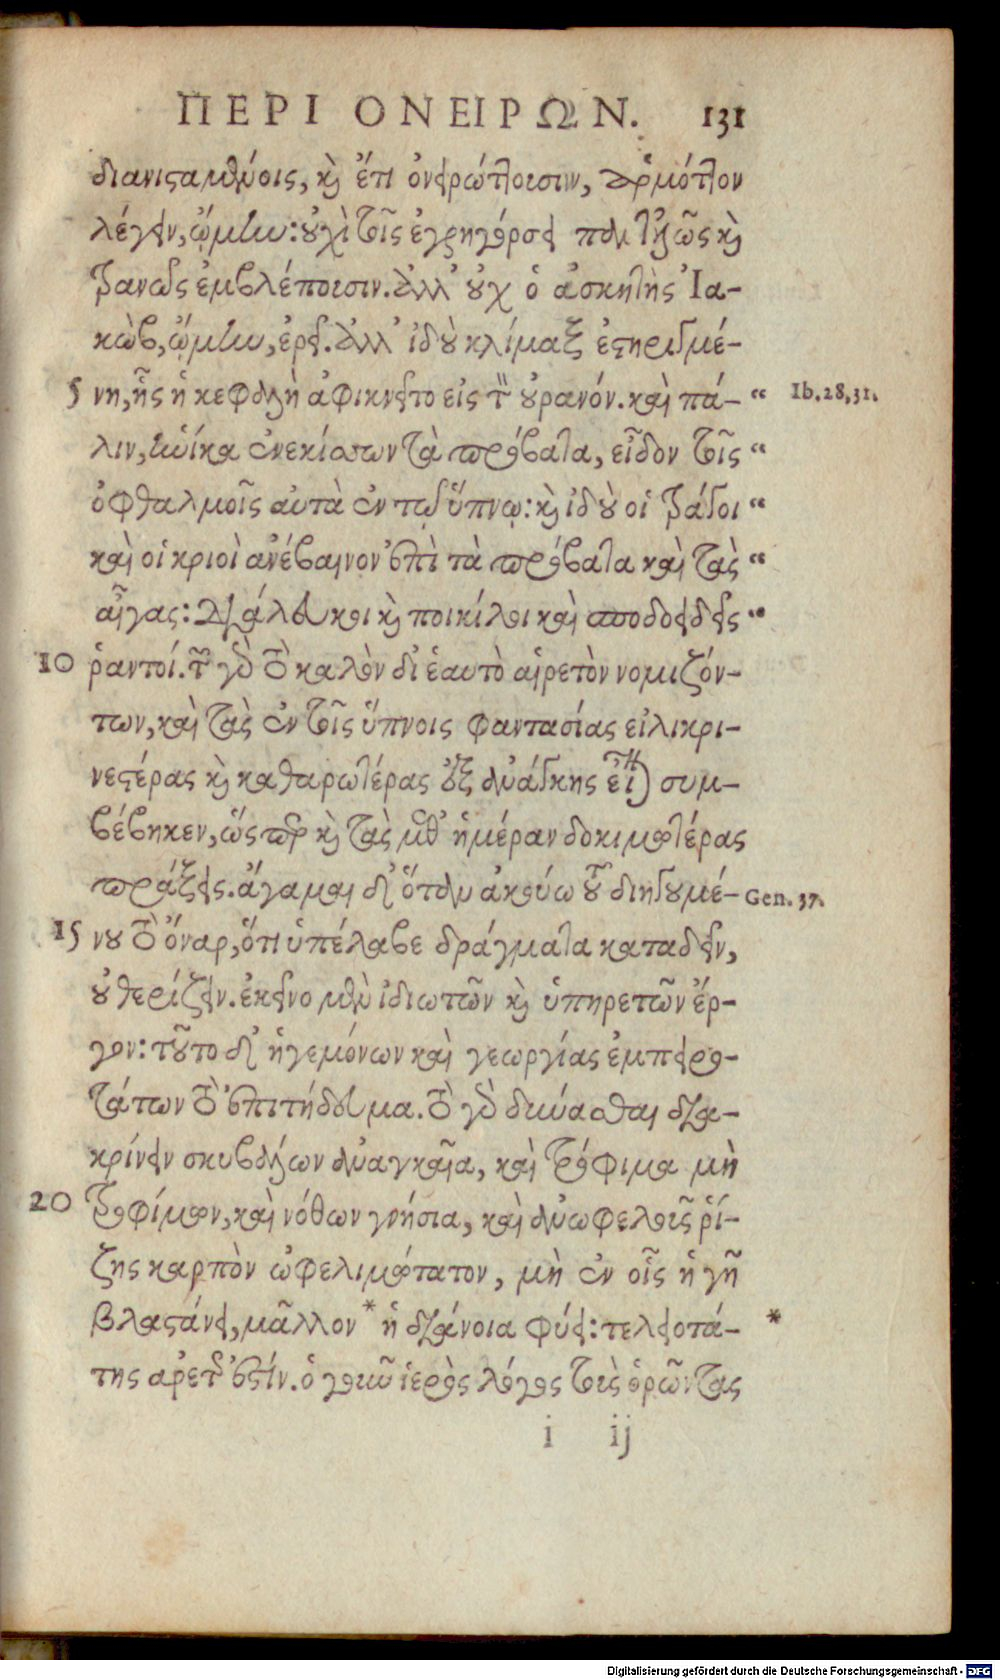 ΠΕΡΙ ΟΝΕΙΡΩΝ. 131
διανισταμένοις, καὶ ἔτι ὀνειρώττουσιν, ἁρμόττον
λέγειν, ᾤμην: οὐχὶ τοῖς ἐγρηγόρσει παντελῶς καὶ
τρανῶς ἐμβλέπουσιν. ἀλλ' οὐχ ὁ ἀσκητὴς Ἰα-
κὼβ, ᾤμην, ἐρεῖ. ἀλλ' ἰδοὺ κλίμαξ ἐστηριγμέ-
5 νη, ἧς ἡ κεφαλὴ ἀφικνεῖτο εἰς τὸν οὐρανόν. καὶ πά- “ Ib. 28, 31.
λιν, ἡνίκα ἐνεκίσσων τὰ πρόβατα, εἶδον τοῖς “
ὀφθαλμοῖς αὐτὰ ἐν τῷ ὕπνῳ: καὶ ἰδοὺ οἱ τράγοι “
καὶ οἱ κριοὶ ἀνέβαινον ἐπὶ τὰ πρόβατα καὶ τὰς “
αἶγας: διάλευκοι καὶ ποικίλοι καὶ σποδοειδεῖς “
10 ῥαντοί. τῶν γὰρ τὸ καλὸν δι' ἑαυτὸ αἱρετὸν νομιζόν-
των, καὶ τὰς ἐν τοῖς ὕπνοις φαντασίας εἰλικρι-
νεστέρας καὶ καθαρωτέρας ἐξ ἀνάγκης εἶναι συμ-
βέβηκεν, ὥσπερ καὶ τὰς μεθ' ἡμέραν δοκιμωτέρας
πράξεις. ἄγαμαι δ' ὅταν ἀκούω τοῦ διηγουμέ- Gen. 37.
15 νου τὸ ὄναρ, ὅτι ὑπέλαβε δράγματα καταδεῖν,
οὐ θερίζειν. ἐκεῖνο μὲν ἰδιωτῶν καὶ ὑπηρετῶν ἔρ-
γον: τοῦτο δ' ἡγεμόνων καὶ γεωργίας ἐμπειρο-
τάτων τὸ ἐπιτήδευμα. τὸ γὰρ δύνασθαι δια-
κρίνειν σκυβάλων ἀναγκαῖα, καὶ τρόφιμα μὴ
20 τροφίμων, καὶ νόθων γνήσια, καὶ ἀνωφελοῦς ῥί-
ζης καρπὸν ὠφελιμώτατον, μὴ ἐν οἷς ἡ γῆ
βλαστάνει, μᾶλλον * ἡ διάνοια φύει: τελειοτά- *
της ἀρετῆς ἐστίν. ὁ γοῦν ἱερὸς λόγος τοὺς ὁρῶντας
i ij
Digitalisierung gefördert durch die Deutsche Forschungsgemeinschaft - DFG